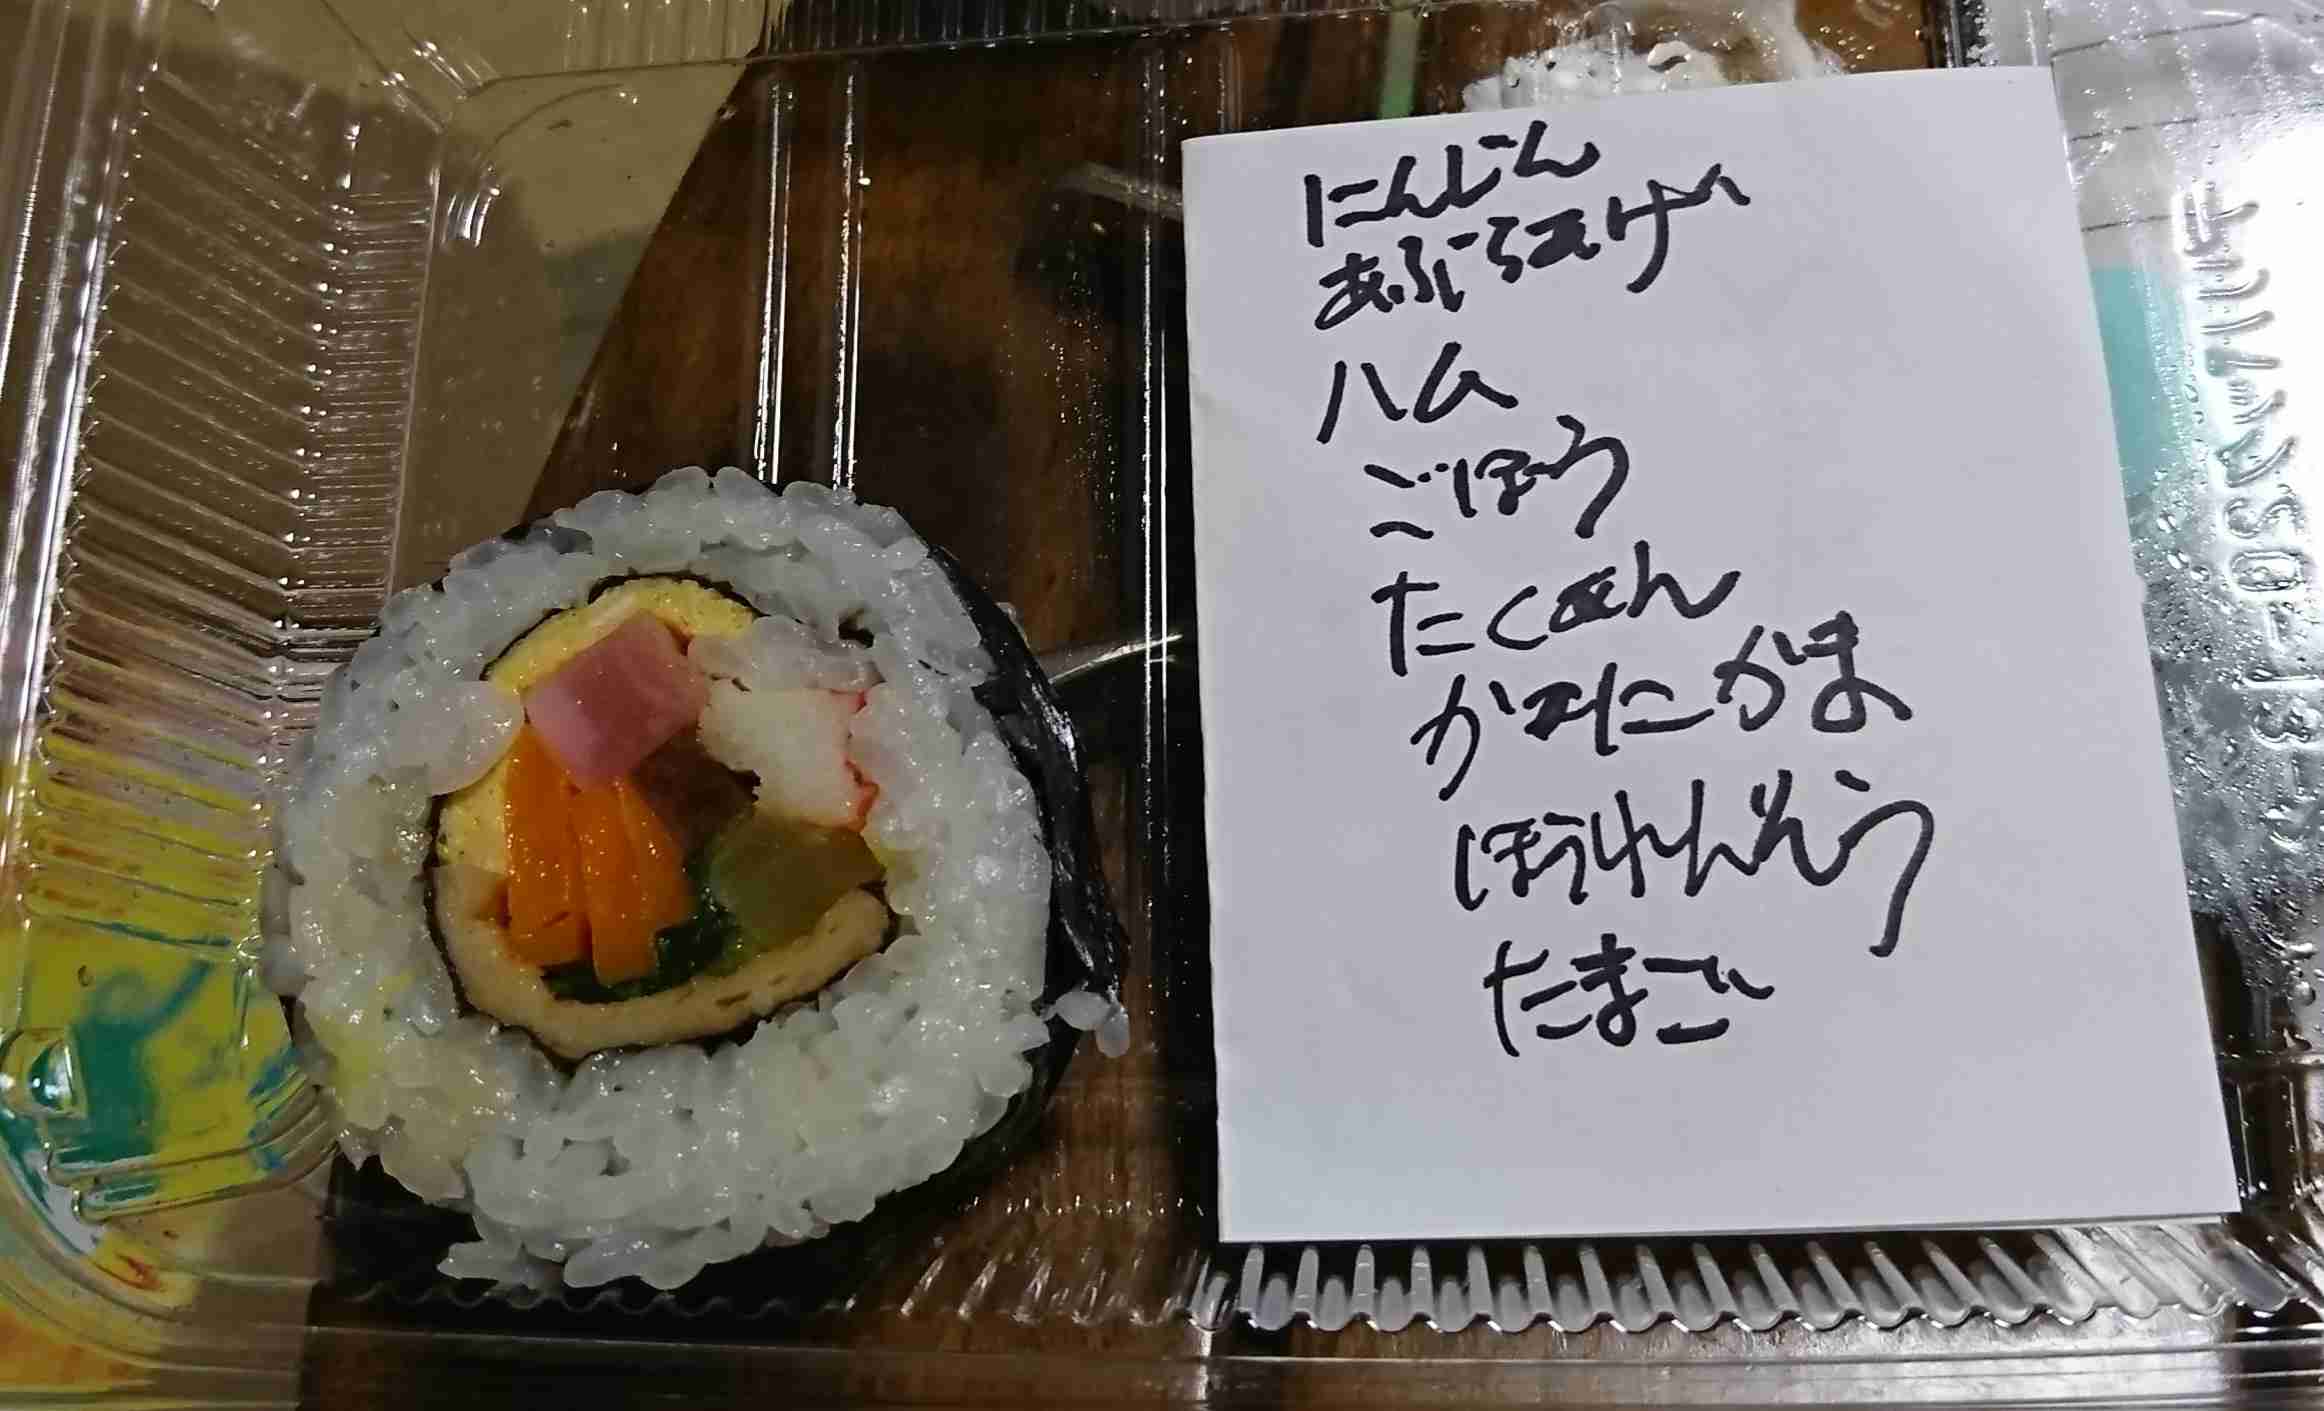 にんじん
あぶらあげ
ハム
ごぼう
たくあん
かにかま
ほうれんそう
たまご